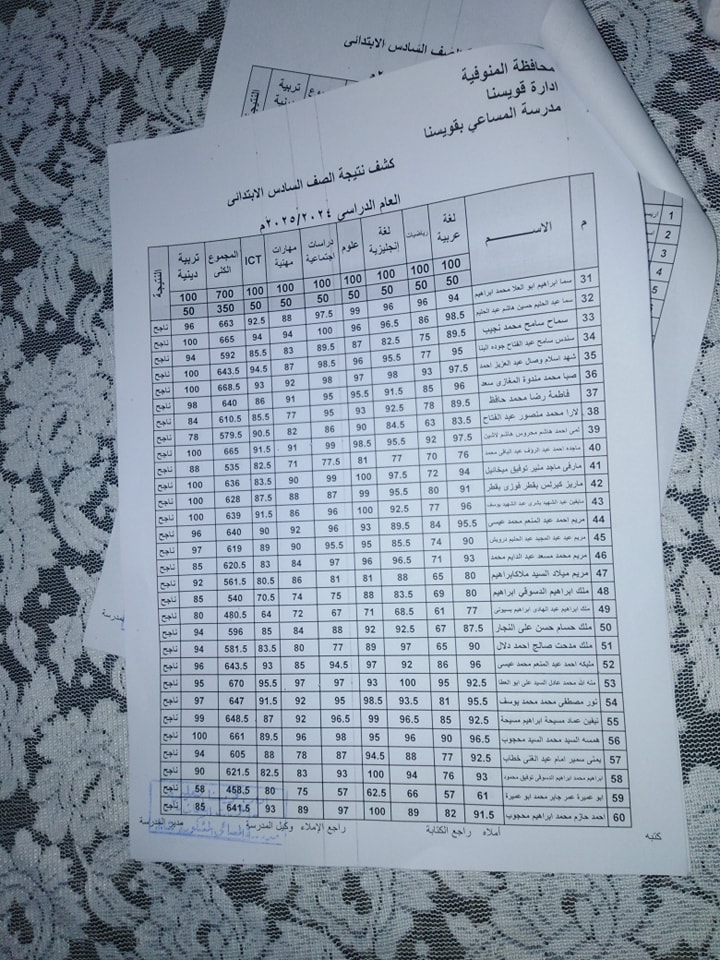 محافظة المنوفية
ادارة قويسنا
مدرسة المساعي بقويسنا
كشف نتيجة الصف السادس الابتدائى
العام الدراسي ٢٠٢٥/٢٠٢٤م
م الاســـــم لغة عربية رياضيات لغة إنجليزية علوم دراسات اجتماعية مهارات مهنية ICT المجموع الكلى تربية دينية النتيجة
100 100 100 100 100 100 100 700 100
50 50 50 50 50 50 50 350 50
31 سما ابراهيم ابو العلا محمد ابراهيم 94 96 96 99 97.5 88 92.5 663 96 ناجح
32 سما عبد الحليم حسين هاشم عبد الحليم 98.5 86 96.5 96 100 94 94 665 100 ناجح
33 سماح سامح محمد نجيب 89.5 75 82.5 87 89.5 83 85.5 592 94 ناجح
34 سندس سامح عبد الفتاح جوده البنا 95 77 95.5 96 98.5 87 94.5 643.5 100 ناجح
35 شهد اسلام وصال عبد العزيز احمد 97.5 93 98 97 98 92 93 668.5 100 ناجح
36 صبا محمد مندوة المغازى سعد 96 85 91.5 95.5 95 91 86 640 98 ناجح
37 فاطمة رضا محمد حافظ 89.5 78 92.5 93 95 77 85.5 610.5 84 ناجح
38 لارا محمد منصور عبد الفتاح 83.5 63 84.5 90 86 82 90.5 579.5 78 ناجح
39 لمى احمد هاشم محروس هاشم لاشين 97.5 92 95.5 98.5 99 91 91.5 665 100 ناجح
40 ماجده احمد عبد الرؤف عبد الباقى محمد 76 70 77 81 77.5 71 82.5 535 88 ناجح
41 مارفى ماجد منير توفيق ميخائيل 94 72 97.5 100 99 90 83.5 636 100 ناجح
42 ماريز كيرلس بقطر فوزى بقطر 91 80 95.5 99 87 88 87.5 628 100 ناجح
43 مايفين عبد الشهيد بشرى عبد الشهيد يوسف 96 77 92.5 100 96 86 91.5 639 100 ناجح
44 مريم احمد عبد المنعم محمد عيسى 95.5 84 89.5 93 96 92 90 640 96 ناجح
45 مريم عبد عبد المجيد عبد الحليم درويش 90 74 85.5 95 95.5 90 89 619 97 ناجح
46 مريم محمد مسعد عبد الدايم محمد 93 71 96.5 96 97 84 83 620.5 85 ناجح
47 مريم ميلاد السيد ملاكابراهيم 80 65 88 81 81 86 80.5 561.5 92 ناجح
48 ملك ابراهيم الدسوقي ابراهيم 80 69 83.5 88 75 74 70.5 540 85 ناجح
49 ملك ابراهيم عبد الهادى ابراهيم بسيونى 77 61 68.5 71 67 72 64 480.5 80 ناجح
50 ملك حسام حسن على النجار 87.5 67 92.5 92 88 84 85 596 94 ناجح
51 ملك مدحت صالح احمد دلال 90 65 97 89 77 80 83.5 581.5 94 ناجح
52 مليكه احمد عبد المنعم محمد عيسى 96 86 92 97 94.5 85 93 643.5 96 ناجح
53 منه الله محمد عادل السيد على ابو العطا 92.5 95 100 93 97 97 95.5 670 95 ناجح
54 نور مصطفى محمد محمد يوسف 95.5 81 93.5 98.5 95 92 91.5 647 97 ناجح
55 نيفين عماد مسيحة ابراهيم مسيحة 92.5 85 96.5 99 96.5 92 87 648.5 99 ناجح
56 همسه السيد محمد السيد محجوب 96.5 90 96 95 98 96 89.5 661 100 ناجح
57 يمنى سمير امام عبد الغنى خطاب 92.5 77 88 94.5 87 78 88 605 94 ناجح
58 ابراهيم محمد ابراهيم الدسوقى توفيق محمود 93 76 94 100 93 83 82.5 621.5 90 ناجح
59 ابو عميرة عمر جابر محمد ابو عميرة 61 57 66 62.5 57 75 80 458.5 58 ناجح
60 احمد حازم محمد ابراهيم محجوب 91.5 82 89 100 97 89 93 641.5 85 ناجح
كتبه أملاه راجع الكتابة راجع الإملاء وكيل المدرسة مدير المدرسة
الصف السادس الابتدائى
تربية دينية
النتيجة
1
2
3
4
5
6